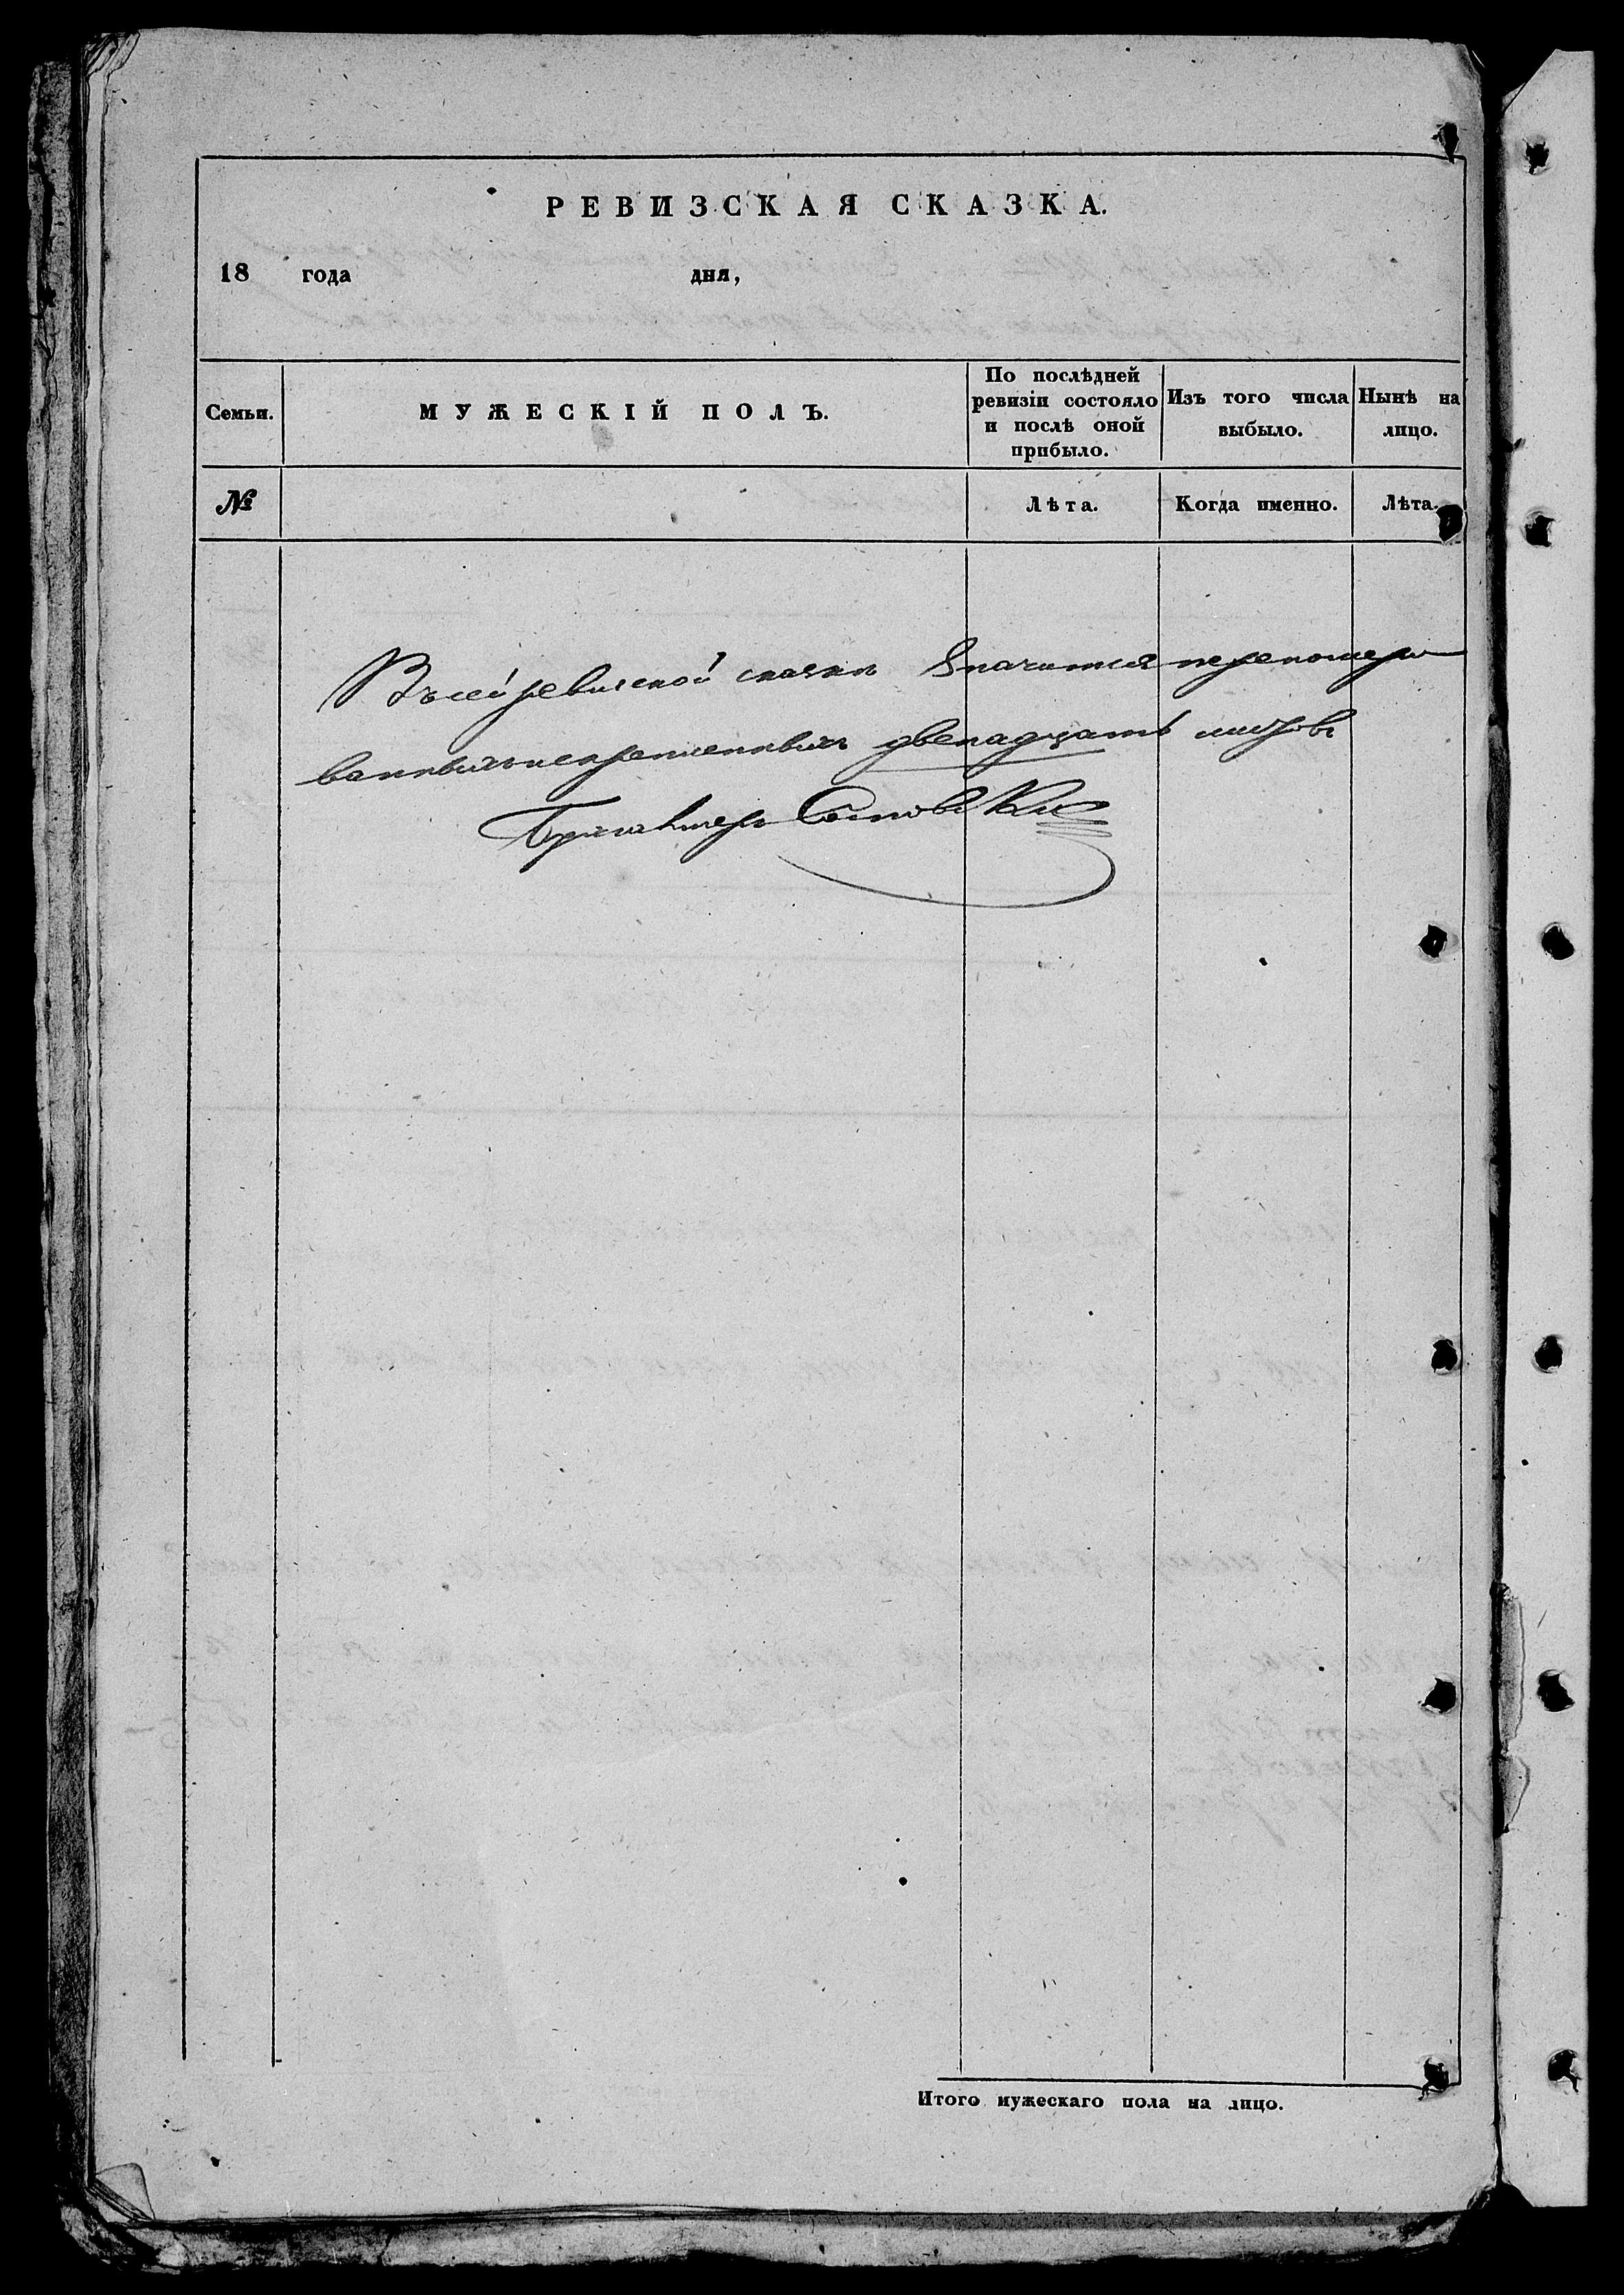 РЕВИЗСКАЯ СКАЗКА.
18 года дня,
Семьи.
МУЖЕСКІЙ ПОЛЪ.
По послѣдней
ревизіи состояло
и послѣ оной
прибыло.
Изъ того числа
выбыло.
Нынѣ на
лицо.
№
Лѣта.
Когда именно.
Лѣта.
Въ сей ревизской сказки Значится перенумеро
ванныхъ и скрепленныхъ двенадцать листовъ
Бухгалтеръ
Итого мужескаго пола на лицо.